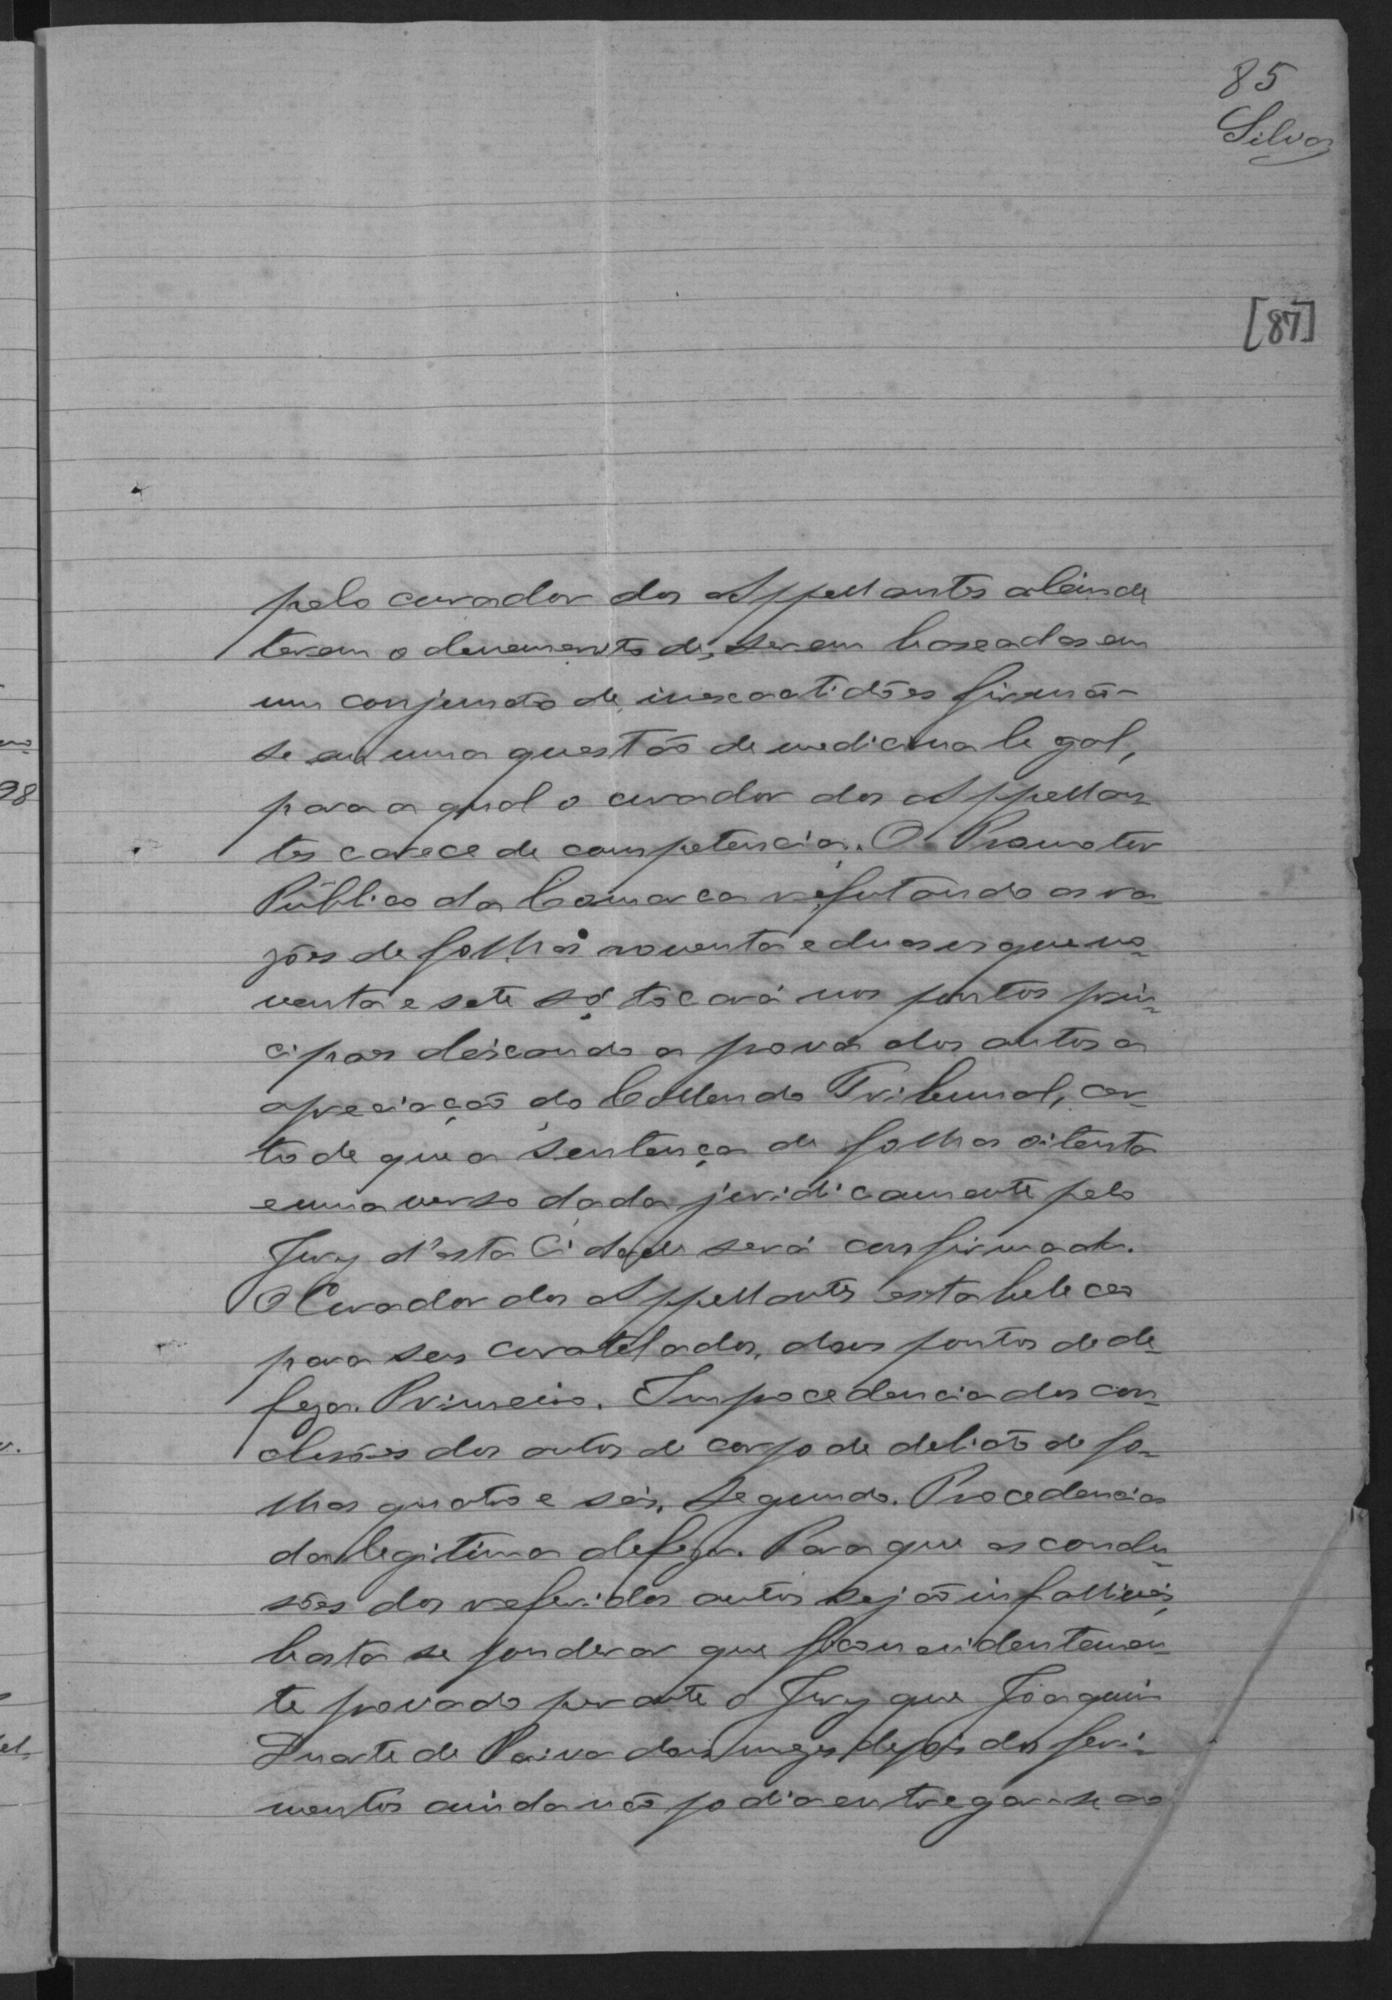 85
Silva
[87]
pelo curador dos Appellantes além de
terem o demerito de, serem baseadas em
um conjuncto de inexactidões firmão-
se em uma questão de medicina legal,
para a qual o curador dos Appellan-
tes carece de competencia. O Promotor
Público da Comarca refutando as ra-
zões de folhas noventa e duas us que no-
venta e sete só tocará nos pontos prin-
cipaes deixando a prova dos autos a
apreciação do Collendo Tribunal, cer-
to de que a sentença de folhas oitenta
e uma verso dada juridicamente pelo
Jury d'esta Cidade será confirmada.
O Curador dos Appellantes estabelece
para seus curatelados, dous pontos de de-
feza. Primeiro. Improcedencia das con-
clusões dos autos de corpo de delicto de fo-
lhas quatro e seis. Segundo. Procedencia
da legitima defeza. Para que as conclu-
sões dos referidos autos sejão infalliveis,
basta se ponderar que ficou evidentemen-
te provado perante o Jury que Joaquim
Duarte de Paiva dous mezes depois dos feri-
mentos ainda não podia entregar-se ao